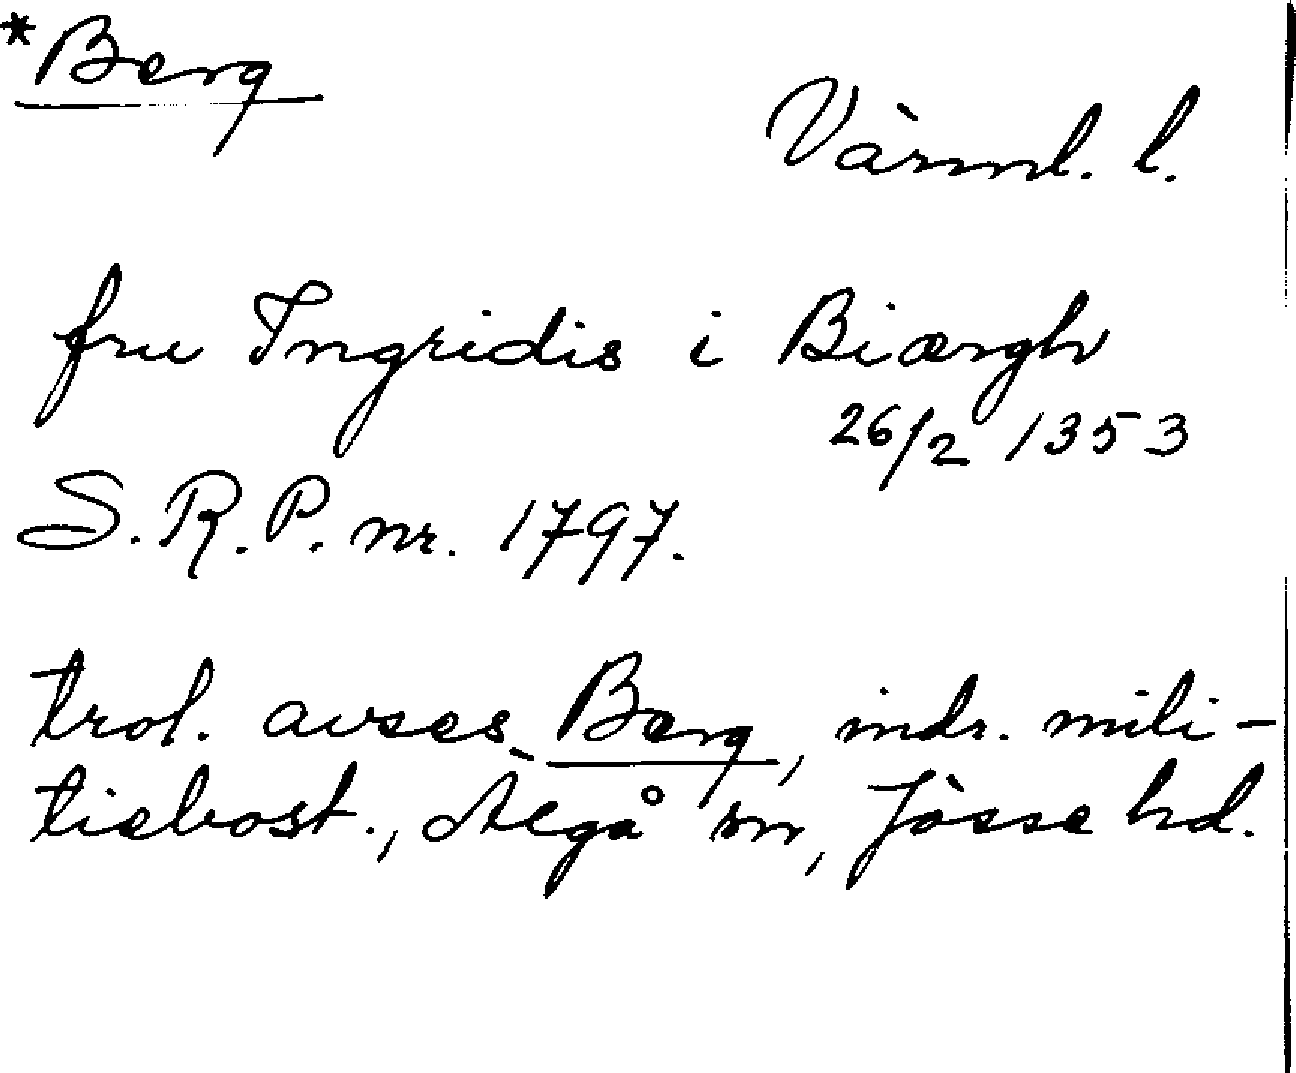 *Berg
Värml. l.
fru Ingridis i Biærgh
26/2 1353
S.R.P. nr. 1797.
trol. avses Berg, indr. mili-
tiebost., Älgå sn, Jösse hd.